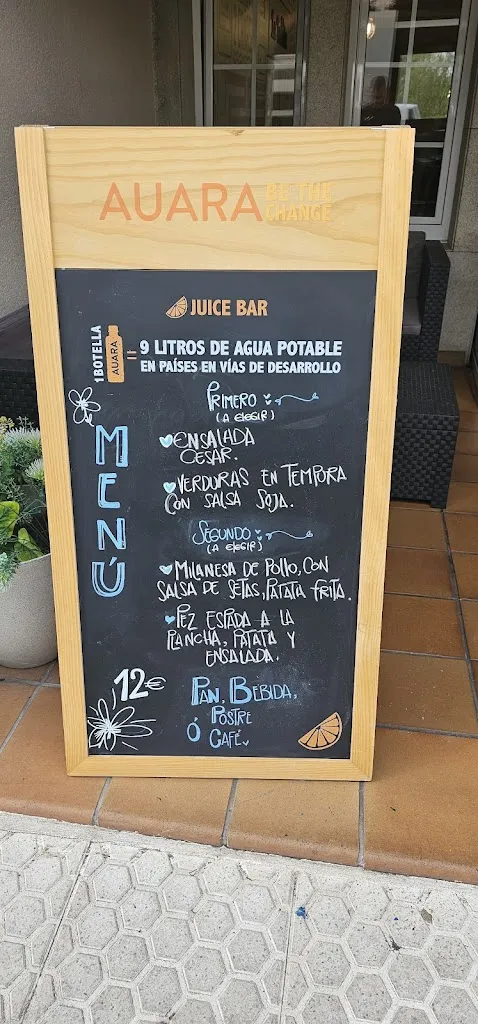 AUARA BE THE CHANGE
JUICE BAR
1 BOTELLA AUARA = 9 LITROS DE AGUA POTABLE
EN PAÍSES EN VÍAS DE DESARROLLO
MENÚ
PRIMERO:
(A ELEGIR)
ENSALADA
CESAR.
VERDURAS EN TEMPORA
CON SALSA SOJA.
SEGUNDO:
(A ELEGIR)
MILANESA DE POLLO, CON
SALSA DE SETAS, PATATA FRITA.
PEZ ESPADA A LA
PLANCHA, PATATA Y
ENSALADA.
12€
PAN, BEBIDA,
POSTRE
Ó CAFÉ